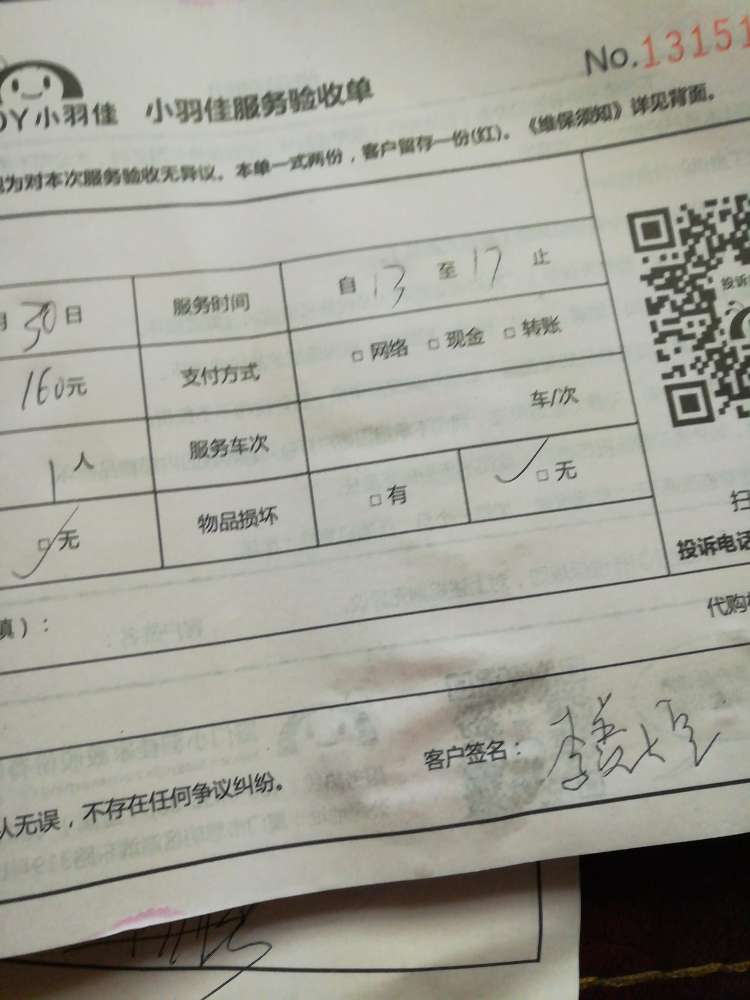 No.13151
DY小羽佳 小羽佳服务验收单
为对本次服务验收无异议。本单一式两份，客户留存一份(红)。《维保须知》详见背面。
月30日 服务时间 自13至17止
160元 支付方式 □网络 □现金 □转账
1人 服务车次 车/次
□无 物品损坏 □有 □无
投诉
扫
投诉电话
填）：
代购
客户签名：
人无误，不存在任何争议纠纷。